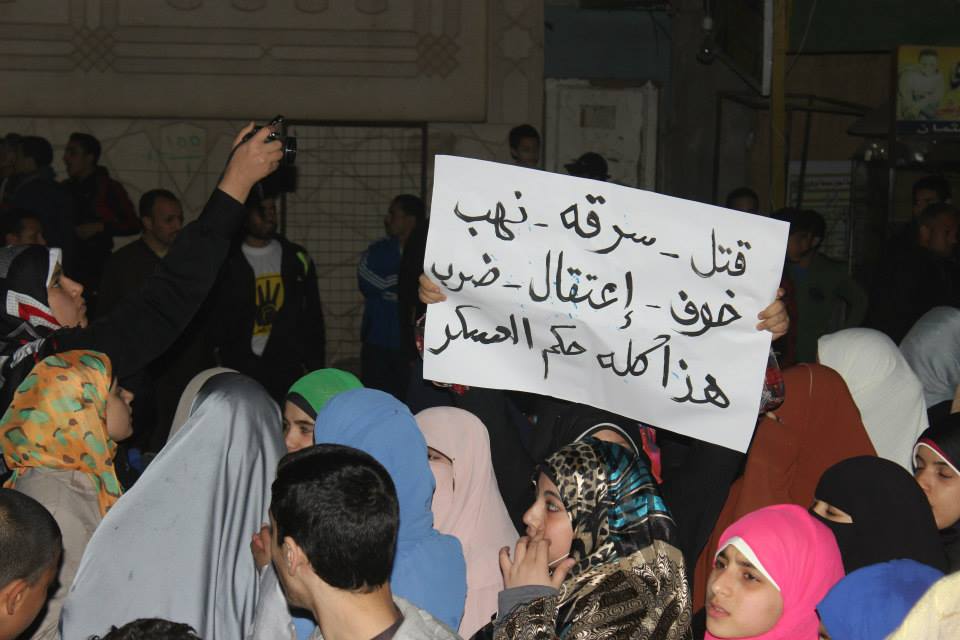 قتل - سرقه - نهب
خوف - إعتقال - ضرب
هذا كله حكم العسكر